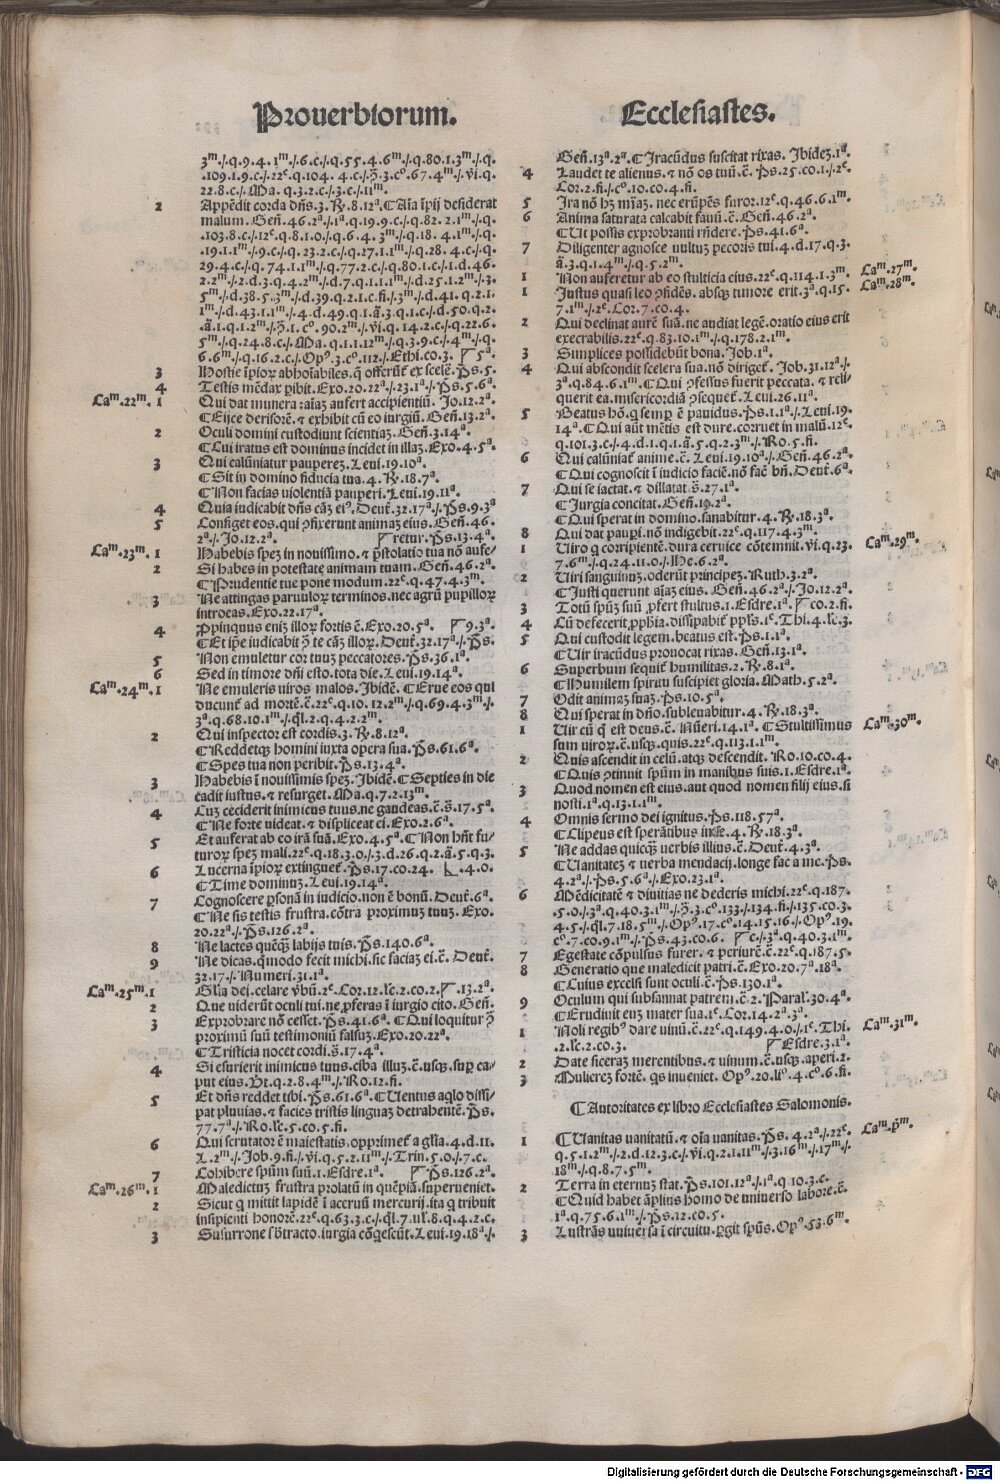 Prouerbiorum.
3m./.q.9.4.1m./.6.c./.q.55.4.6m./.q.80.1.3m./.q.
.109.1.9.c./.22e.q.104.4.c./.p̄.3.co.67.4m./.vi.q.
22.8.c./.Ma.q.3.2.c./.3.c./.11m.
2 Appēdit corda dn̄s.3.ꝶ.8.12a.¶Aīa īpij desiderat
malum.Gen̄.46.2a./.1a.q.19.9.c./.q.82.2.1m./.q.
.103.8.c./.12e.q.8.1.0./.q.6.4.3m./.q.18.4.1m./.q.
.19.1.1m./.9.c./.q.23.2.c./.q.27.1.1m./.q.28.4.c./.q.
29.4.c./.q.74.1.1m./.q.77.2.c./.q.80.1.c./.1.d.46.
2.2m./.2.d.3.q.4.2m./.d.7.q.1.1.1m./.d.25.1.2m./.3.
5m./.d.38.5.3m./.d.39.q.2.1.c.fi./.3m./.d.41.q.2.1.
1m./.d.43.1.1m./.4.d.49.q.1.ā.3.q.1.c./.d.50.q.2.
.ā.1.q.1.2m./.p̄.1.co.90.2m./.vi.q.14.2.c./.q.22.6.
5m./.q.24.8.c./.Ma.q.1.1.12m./.q.3.9.c./.4m./.q.
6.6m./.q.16.2.c./.Opꝰ.3.co.112./.Ethi.co.3. 5a.
3 Hostie īpioꝝ abhoīabiles.q̄ offerūt ex scelē.Ps̄.5.
4 Testis mēdax ꝑibit.Exo.20.22a./.23.1a./.Ps̄.5.6a.
Cam.22m. 1 Qui dat munera:aīaꝫ aufert accipientiū.Jo.12.2a.
¶Eijce derisorē.⁊ exhibit cū eo iurgiū.Gen̄.13.2a.
2 Oculi domini custodiunt scientiaꝫ.Gen̄.3.14a.
¶Cui iratus est dominus incidet in illaꝫ.Exo.4.5a.
3 Qui calūniatur paupereꝫ.Leui.19.10a.
¶Sit in domino fiducia tua.4.ꝶ.18.7a.
¶Non facias violentiā pauperi.Leui.19.11a.
4 Quia iudicabit dn̄s cāꝫ eiꝰ.Deut̄.32.17a./.Ps̄.9.3a
5 Configet eos.qui ꝯfixerunt animaꝫ eius.Gen̄.46.
2a./.Jo.12.2a. retur.Ps̄.13.4a.
Cam.23m. 1 Habebis speꝫ in nouissimo.⁊ p̄stolatio tua nō aufe/
2 Si habes in potestate animam tuam.Gen̄.46.2a.
¶Prudentie tue pone modum.22e.q.47.4.3m.
3 Ne attingas paruuloꝝ terminos.nec agrū pupilloꝝ
introeas.Exo.22.17a.
4 Ꝓpinquus eniꝫ illoꝝ fortis ē.Exo.20.5a. 9.3a.
¶Et ip̄e iudicabit ꝯ̄ te cāꝫ illoꝝ.Deut̄.32.17a./.Ps̄.
5 Non emuletur cor tuuꝫ peccatores.Ps̄.36.1a.
6 Sed in timore dn̄i esto.tota die.Leui.19.14a.
Cam.24m. 1 Ne emuleris viros malos.Ibidē.¶Erue eos qui
ducunt̄ ad mortē.c̄.22e.q.10.12.2m./.q.69.4.3m./.
3a.q.68.10.1m./.ql̄.2.q.4.2.2m.
2 Qui inspector est cordis.3.ꝶ.8.12a.
¶Reddetqꝫ homini iuxta opera sua.Ps̄.61.6a.
¶Spes tua non peribit.Ps̄.13.4a.
3 Habebis ī nouissimis speꝫ.Ibidē.¶Septies in die
cadit iustus.⁊ resurget.Ma.q.7.2.13m.
4 Cuꝫ ceciderit inimicus tuus.ne gaudeas.c̄.s̄.17.5a.
¶Ne forte videat.⁊ displiceat ei.Exo.2.6a.
5 Et auferat ab eo irā suā.Exo.4.5a.¶Non hn̄t fu/
turoꝝ speꝫ mali.22e.q.18.3.0./.3.d.26.q.2.ā.5.q.3.
6 Lucerna īpioꝝ extinguet̄.Ps̄.17.co.24. .4.0.
¶Time dominuꝫ.Leui.19.14a.
7 Cognoscere ꝑsonā in iudicio.non ē bonū.Deut̄.6a.
¶Ne sis testis frustra.cōtra proximuꝫ tuuꝫ.Exo.
20.22a./.Ps̄.126.2a.
8 Ne lactes quēqꝫ labijs tuis.Ps̄.140.6a.
9 Ne dicas.q̄modo fecit michi.sic faciaꝫ ei.c̄.Deut̄.
32.17./.Numeri.31.1a.
Cam.25m. 1 Gl̄ia dei.celare v̄bū.2e.Cor.12.lc̄.2.co.2. 13.2a.
2 Que viderūt oculi tui.ne ꝓferas ī iurgio cito.Gen̄.
3 Exprobrare nō cesset.Ps̄.41.6a.¶Qui loquitur ꝯ̄
proximū suū testimoniū falsuꝫ.Exo.20.22a.
¶Tristicia nocet cordi.s̄.17.4a.
4 Si esurierit inimicus tuus.ciba illuꝫ.c̄.usqꝫ.suꝑ ca/
put eius.Vt.q.2.8.4m./.Ro.12.fi.
5 Et dn̄s reddet tibi.Ps̄.61.6a.¶Ventus aq̄lo dissi/
pat pluuias.⁊ facies tristis linguaꝫ detrahentē.Ps̄.
77.7a./.Ro.lc̄.5.co.5.fi.
6 Qui scrutator ē maiestatis.opprimet̄ a gl̄ia.4.d.11.
L.2m./.Job.9.fi./.vi.q.5.2.11m./.Trin.5.0./.7.c.
7 Cohibere spūm suū.1.Esdre.1a. Ps̄.126.2a.
Cam.26m. 1 Maledictuꝫ frustra prolatū in quēpiā.superueniet.
2 Sicut q̄ mittit lapidē ī aceruū mercurij.ita q̄ tribuit
insipienti honorē.22e.q.63.3.c./.ql̄.7.vl̄.8.q.4.2.c.
3 Susurrone sb̄tracto.iurgia cōq̄escūt.Leui.19.18a./.
Ecclesiastes.
Gen̄.13a.2a.¶Iracūdus suscitat rixas.Ibideꝫ.1a.
4 Laudet te alienus.⁊ nō os tuū.c̄.Ps̄.25.co.1./.2e.
Cor.2.fi./.co.10.co.4.fi.
5 Ira nō hꝫ mīaꝫ.nec erūpēs furor.12e.q.46.6.1m.
6 Anima saturata calcabit fauū.c̄.Gen̄.46.2a.
¶Ut possis exprobranti rn̄dere.Ps̄.41.6a.
7 Diligenter agnosce vultuꝫ pecoris tui.4.d.17.q.3.
ā.3.q.1.4m./.q.5.2m.
1 Non auferetur ab eo stulticia eius.22e.q.114.1.3m. Cam.27m.
1 Justus quasi leo ꝯfidēs.absqꝫ timore erit.3a.q.15. Cam.28m.
7.1m./.2e.Cor.7.co.4.
2 Qui declinat aurē suā.ne audiat legē.oratio eius erit
execrabilis.22e.q.83.10.1m./.q.178.2.1m.
3 Simplices possidebūt bona.Job.1a.
4 Qui abscondit scelera sua.nō diriget̄.Job.31.12a./.
3a.q.84.6.1m.¶Qui ꝯfessus fuerit peccata.⁊ reli/
querit ea.misericordiā ꝯsequet̄.Leui.26.11a.
5 Beatus hō.q̄ semꝑ ē pauidus.Ps̄.1.1a./.Leui.19.
14a.¶Qui aūt mētis est dure.corruet in malū.12e.
q.101.3.c./.4.d.1.q.1.ā.5.q.2.3m./.Ro.5.fi.
6 Qui calūniat̄ anime.c̄.Leui.19.10a./.Gen̄.46.2a.
¶Qui cognoscit ī iudicio faciē.nō fac̄ bn̄.Deut̄.6a.
7 Qui se iactat.⁊ dilatat.s̄.27.1a.
¶Jurgia concitat.Gen̄.19.2a.
¶Qui sperat in domino.sanabitur.4.ꝶ.18.3a.
8 Qui dat pauꝑi.nō indigebit.22e.q.117.4.3m.
1 Viro q̄ corripientē.dura ceruice cōtemnit.vi.q.23. Cam.29m.
7.6m./.q.24.11.0./.He.6.2a.
2 Viri sanguinuꝫ.oderūt principeꝫ.Ruth.3.2a.
¶Justi querunt aīaꝫ eius.Gen̄.46.2a./.Jo.12.2a.
3 Totū spūꝫ suū ꝓfert stultus.1.Esdre.1a. co.2.fi.
4 Cū defecerit ꝓph̄ia.dissipabit̄ ppl̄s.1e.Thi.4.lc̄.3.
5 Qui custodit legem.beatus est.Ps̄.1.1a.
¶Vir iracūdus prouocat rixas.Gen̄.13.1a.
6 Superbum sequit̄ humilitas.2.ꝶ.8.1a.
¶Humilem spiritu suscipiet gloria.Math.5.2a.
7 Odit animaꝫ suaꝫ.Ps̄.10.5a.
8 Qui sperat in dn̄o.subleuabitur.4.ꝶ.18.3a.
1 Vir cū q̄ est deus.c̄.Nūeri.14.1a.¶Stultissimus Cam.30m.
sum viroꝝ.c̄.usqꝫ.quis.22e.q.113.1.1m.
2 Quis ascendit in celū.atqꝫ descendit.Ro.10.co.4.
¶Quis ꝯtinuit spūm in manibus suis.1.Esdre.1a.
3 Quod nomen est eius.aut quod nomen filij eius.si
nosti.1a.q.13.1.1m.
4 Omnis sermo dei ignitus.Ps̄.118.57a.
¶Clipeus est sperātibus in se.4.ꝶ.18.3a.
5 Ne addas quicqꝫ verbis illius.c̄.Deut̄.4.3a.
¶Vanitateꝫ ⁊ verba mendacij.longe fac a me.Ps̄.
4.2a./.Ps̄.5.6a./.Exo.23.1a.
6 Mēdicitatē ⁊ diuitias ne dederis michi.22e.q.187.
.5.0./.3a.q.40.3.1m./.p̄.3.co.133./.134.fi./.135.co.3.
4.5./.ql̄.7.18.5m./.Opꝰ.17.co.14.15.16./.Opꝰ.19.
co.7.co.9.1m./.Ps̄.43.co.6. c./.3a.q.40.3.1m.
7 Egestate cōpulsus furer.⁊ periurē.c̄.22e.q.187.5.
8 Generatio que maledicit patri.c̄.Exo.20.7a.18a.
¶Cuius excelsi sunt oculi.c̄.Ps̄.130.1a.
9 Oculum qui subsannat patrem.c̄.2.Paral̄.30.4a.
¶Erudiuit euꝫ mater sua.1e.Cor.14.2a.3a.
1 Noli regibꝰ dare vinū.c̄.22e.q.149.4.0./.1e.Thi. Cam.31m.
.2.lc̄.2.co.3. Esdre.3.1a.
2 Date siceraꝫ merentibus.⁊ vinum.c̄.usqꝫ.aperi.2.
3 Mulierem fortē.q̄s inueniet.Opꝰ.20.lio.4.co.6.fi.
¶Autoritates ex libro Ecclesiastes Salomonis.
1 ¶Vanitas vanitatū.⁊ oīa vanitas.Ps̄.4.2a./.22e. Cam.pm.
q.5.1.2m./.2.d.12.3.c./.vi.q.2.1.11m./.3.16m./.17m./.
18m./.q.8.7.5m.
2 Terra in eternuꝫ stat.Ps̄.101.12a./.1a.q.10.3.c.
¶Quid habet āplius homo de vniuerso labore.c̄.
1a.q.75.6.1m./.Ps̄.12.co.5.
3 Lustrās vniuersa ī circuitu.ꝑgit spūs.Opꝰ.53.6m.
Digitalisierung gefördert durch die Deutsche Forschungsgemeinschaft - DFG